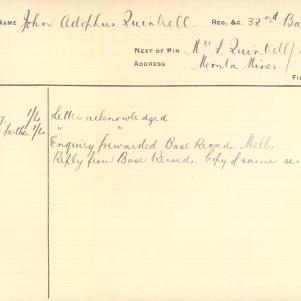 NAME John Adolphus Quintell. REG. &C. 32nd Ba
NEXT OF KIN Mrs S. Quintell/
ADDRESS Moonta Mines/
FI
1/4 Letter acknowledged
" "
Enquiry forwarded Base Records Melb.
Reply from Base Records. Copy of same se